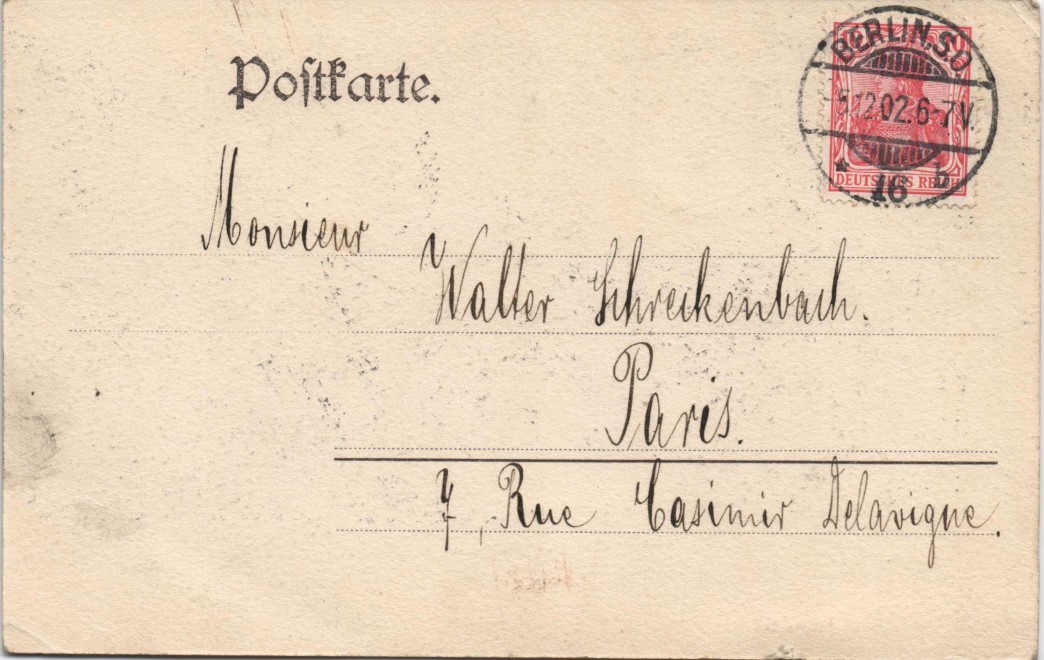 Postkarte.
BERLIN, S.O.
5.12.02.6-7V.
* 16 b
DEUTSCHES REICH
Monsieur
Walter Schreckenbach.
Paris.
7, Rue Casimir Delavigne.